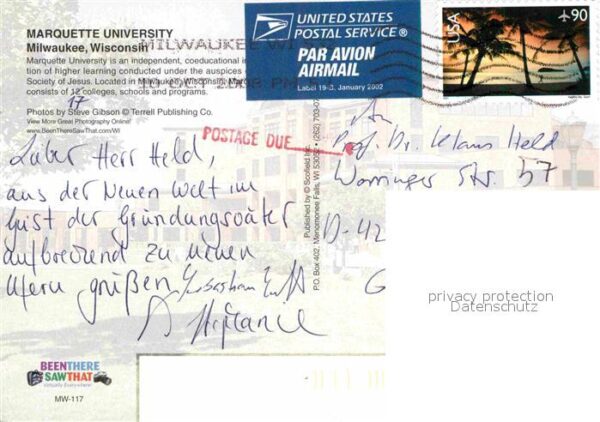 MARQUETTE UNIVERSITY
Milwaukee, Wisconsin
Marquette University is an independent, coeducational in
tion of higher learning conducted under the auspices
Society of Jesus. Located in Milwaukee, Wisconsin, Marq
consists of 12 colleges, schools and programs.
17
Photos by Steve Gibson © Terrell Publishing Co.
View More Great Photography Online!
www.BeenThereSawThat.com/WI
MILWAUKEE WI
10 OCT 2008 PM
UNITED STATES
POSTAL SERVICE®
PAR AVION
AIRMAIL
Label 19-B, January 2002
USA
90
POSTAGE DUE
Lieber Herr Held,
aus der Neuen Welt im
Geist der Gründungsväter
aufbrechend zu neuen
Ufern grüßen
Stephanie
An
Prof. Dr. Klaus Held
Str. 57
D-42
G
Published by © Scofield Inc.
P.O. Box 402, Menomonee Falls, WI 53052 • (262) 703-07
privacy protection
Datenschutz
BEENTHERE
SAWTHAT
Virtually Everywhere!
MW-117